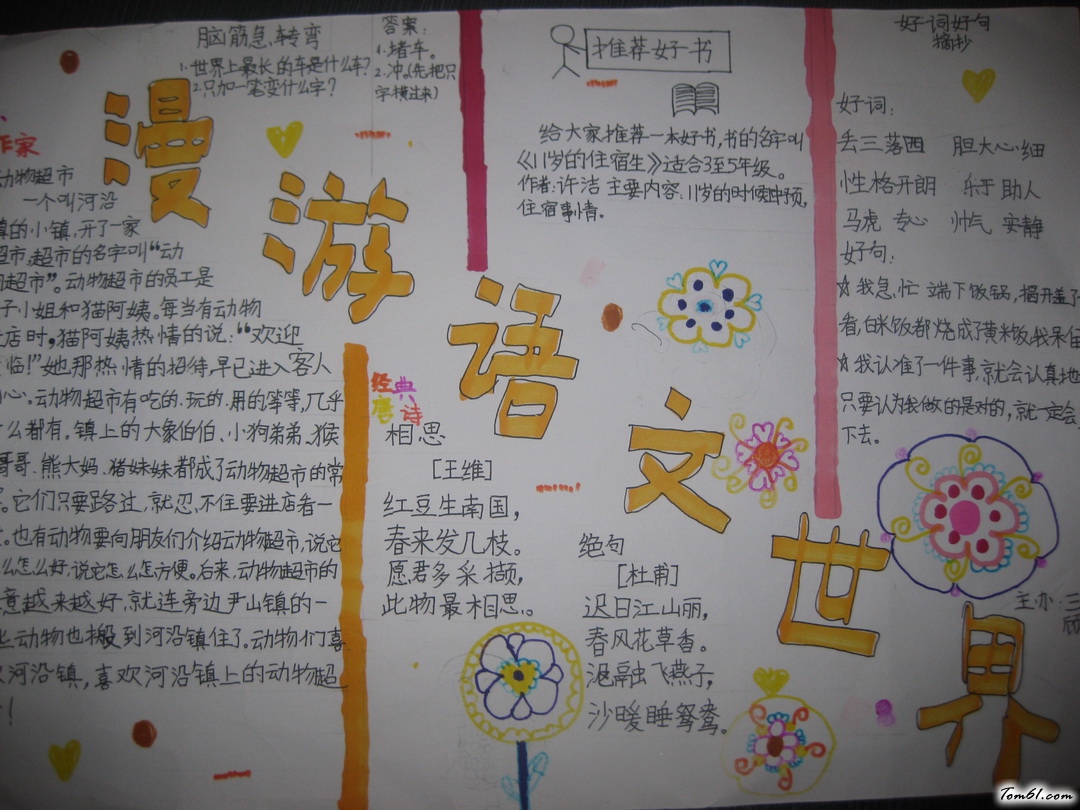 漫游语文世界
脑筋急转弯
1.世界上最长的车是什么车？
2.只加一笔变什么字？
答案：
1.堵车。
2.冲。(先把只
字横过来)
作家
动物超市
一个叫河沿
镇的小镇，开了一家
超市，超市的名字叫“动
物超市”。动物超市的员工是
子小姐和猫阿姨。每当有动物
店时，猫阿姨热情的说：“欢迎
临！”她那热情的招待，早已进入客人
心。动物超市有吃的、玩的、用的等等，几乎
么都有。镇上的大象伯伯、小狗弟弟、猴
哥哥、熊大妈、猪妹妹都成了动物超市的常
。它们只要路过，就忍不住要进店看一
。也有动物要向朋友们介绍动物超市，说它
么怎么好，说它怎么怎方便。后来，动物超市的
意越来越好，就连旁边尹山镇的一
些动物也搬到河沿镇住了。动物们喜
欢河沿镇，喜欢河沿镇上的动物超
！
经典
唐诗
相思
[王维]
红豆生南国，
春来发几枝。
愿君多采撷，
此物最相思。
绝句
[杜甫]
迟日江山丽，
春风花草香。
泥融飞燕子，
沙暖睡鸳鸯。
推荐好书
给大家推荐一本好书，书的名字叫
《11岁的住宿生》适合3至5年级。
作者：许洁 主要内容：11岁的时候申预，
住宿事情。
好词好句
摘抄
好词：
丢三落四 胆大心细
性格开朗 乐于助人
马虎 专心 帅气 安静
好句：
☆我急忙端下饭锅，揭开盖子
看，白米饭都烧成了黄米饭，我呆住
☆我认准了一件事，就会认真地
只要认为我做的是对的，就一定会
下去。
主办：三
Tom61.com